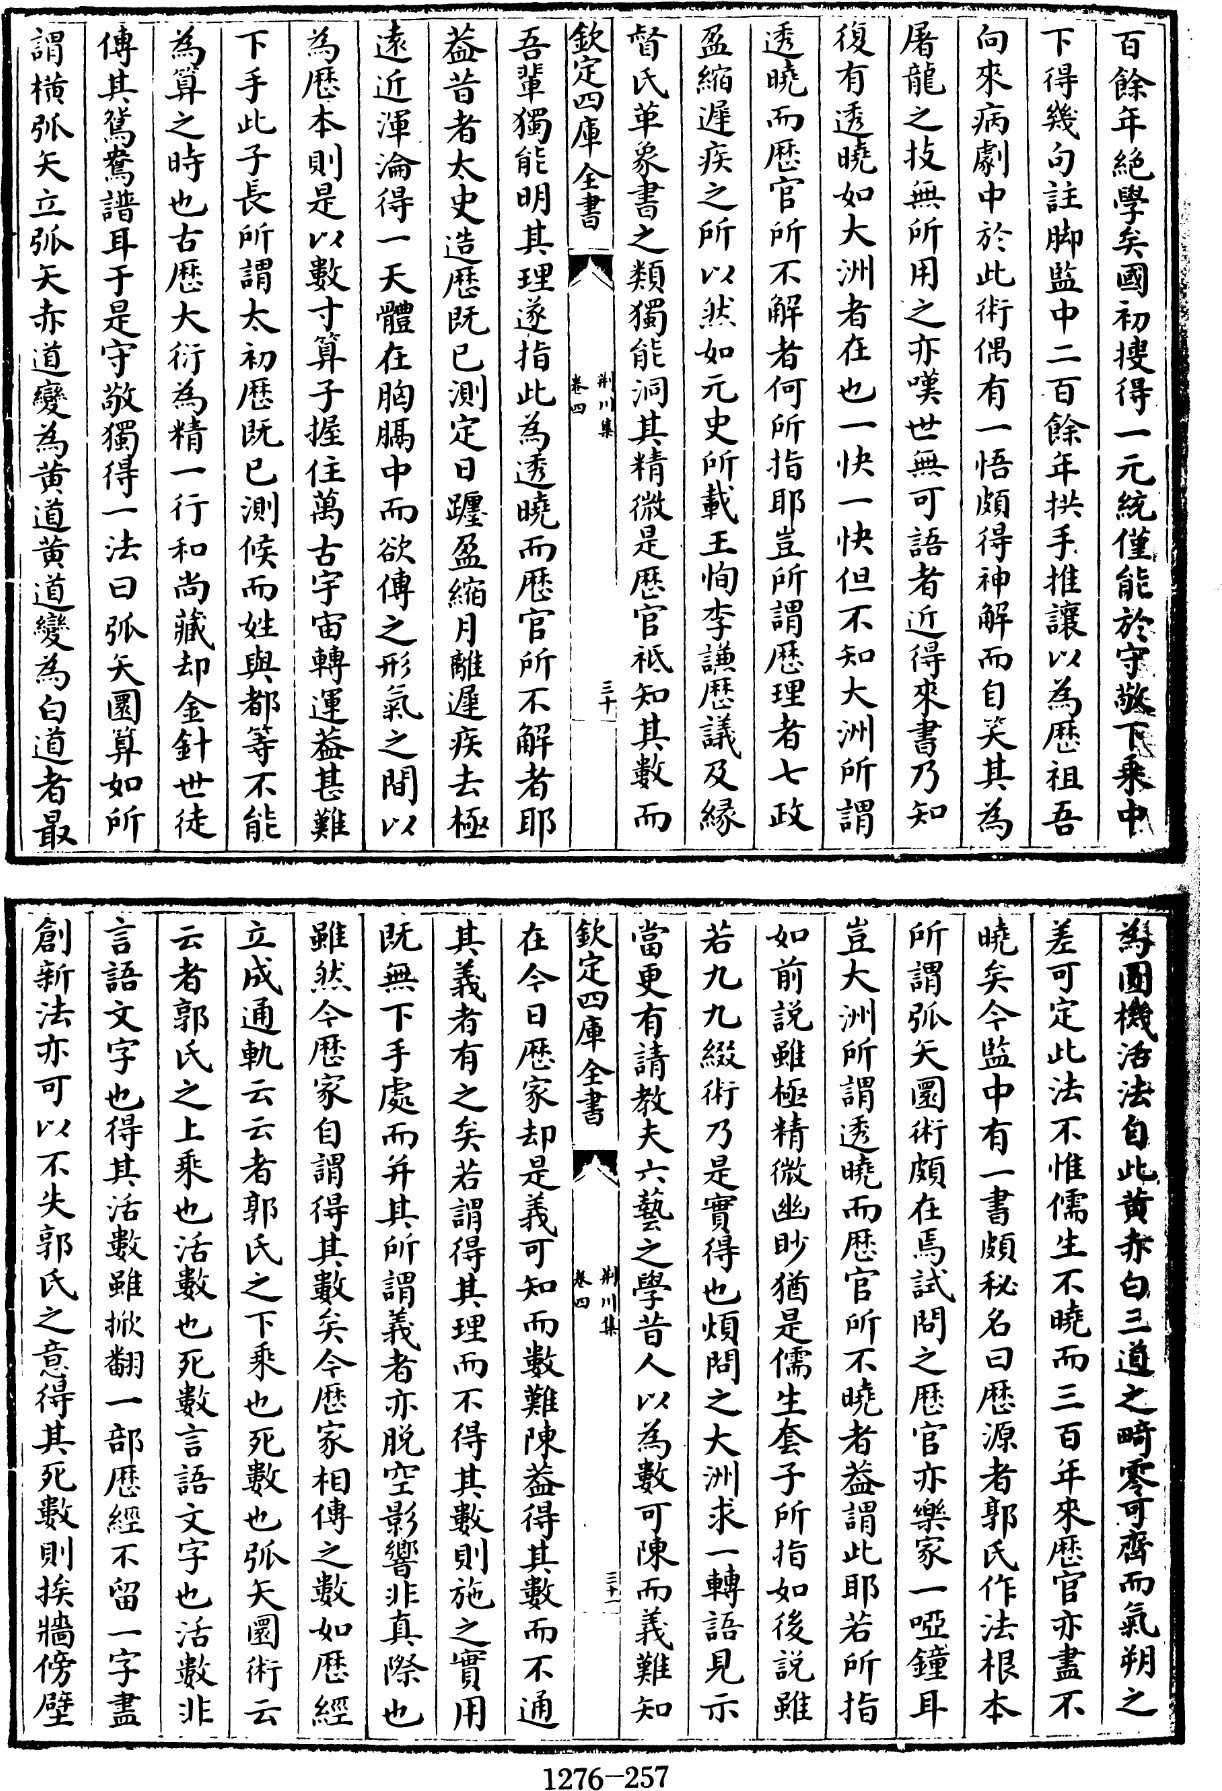 百餘年絶學矣國初搜得一元統僅能於守敬下乘中
下得幾句註脚監中二百餘年拱手推讓以為厯祖吾
向來病劇中於此術偶有一悟頗得神解而自笑其為
屠龍之技無所用之亦嘆世無可語者近得來書乃知
復有透曉如大洲者在也一快一快但不知大洲所謂
透曉而厯官所不解者何所指耶豈所謂厯理者七政
盈縮遲疾之所以然如元史所載王恂李謙厯議及緣
督氏革象書之類獨能洞其精微是厯官祇知其數而
欽定四庫全書
荆川集
卷四
三十
吾輩獨能明其理遂指此為透曉而厯官所不解者耶
葢昔者太史造厯既已測定日躔盈縮月離遲疾去極
遠近渾淪得一天體在胸膈中而欲傳之形氣之間以
為厯本則是以數寸算子握住萬古宇宙轉運葢甚難
下手此子長所謂太初厯既已測候而姓與都等不能
為算之時也古厯大衍為精一行和尚藏却金針世徒
傳其鴛鴦譜耳于是守敬獨得一法曰弧矢圜算如所
謂横弧矢立弧矢赤道變為黄道黄道變為白道者最
為圓機活法自此黄赤白三道之畸零可齊而氣朔之
差可定此法不惟儒生不曉而三百年來厯官亦盡不
曉矣今監中有一書頗秘名曰厯源者郭氏作法根本
所謂弧矢圜術頗在焉試問之厯官亦樂家一啞鐘耳
豈大洲所謂透曉而厯官所不曉者葢謂此耶若所指
如前説雖極精微幽眇猶是儒生套子所指如後説雖
若九九綴術乃是實得也煩問之大洲求一轉語見示
當更有請教夫六藝之學昔人以為數可陳而義難知
欽定四庫全書
荆川集
卷四
三十一
在今日厯家却是義可知而數難陳葢得其數而不通
其義者有之矣若謂得其理而不得其數則施之實用
既無下手處而并其所謂義者亦脱空影響非真際也
雖然今厯家自謂得其數矣今厯家相傳之數如厯經
立成通軌云云者郭氏之下乘也死數也弧矢圜術云
云者郭氏之上乘也活數也死數言語文字也活數非
言語文字也得其活數雖掀翻一部厯經不留一字盡
創新法亦可以不失郭氏之意得其死數則挨牆傍壁
1276-257